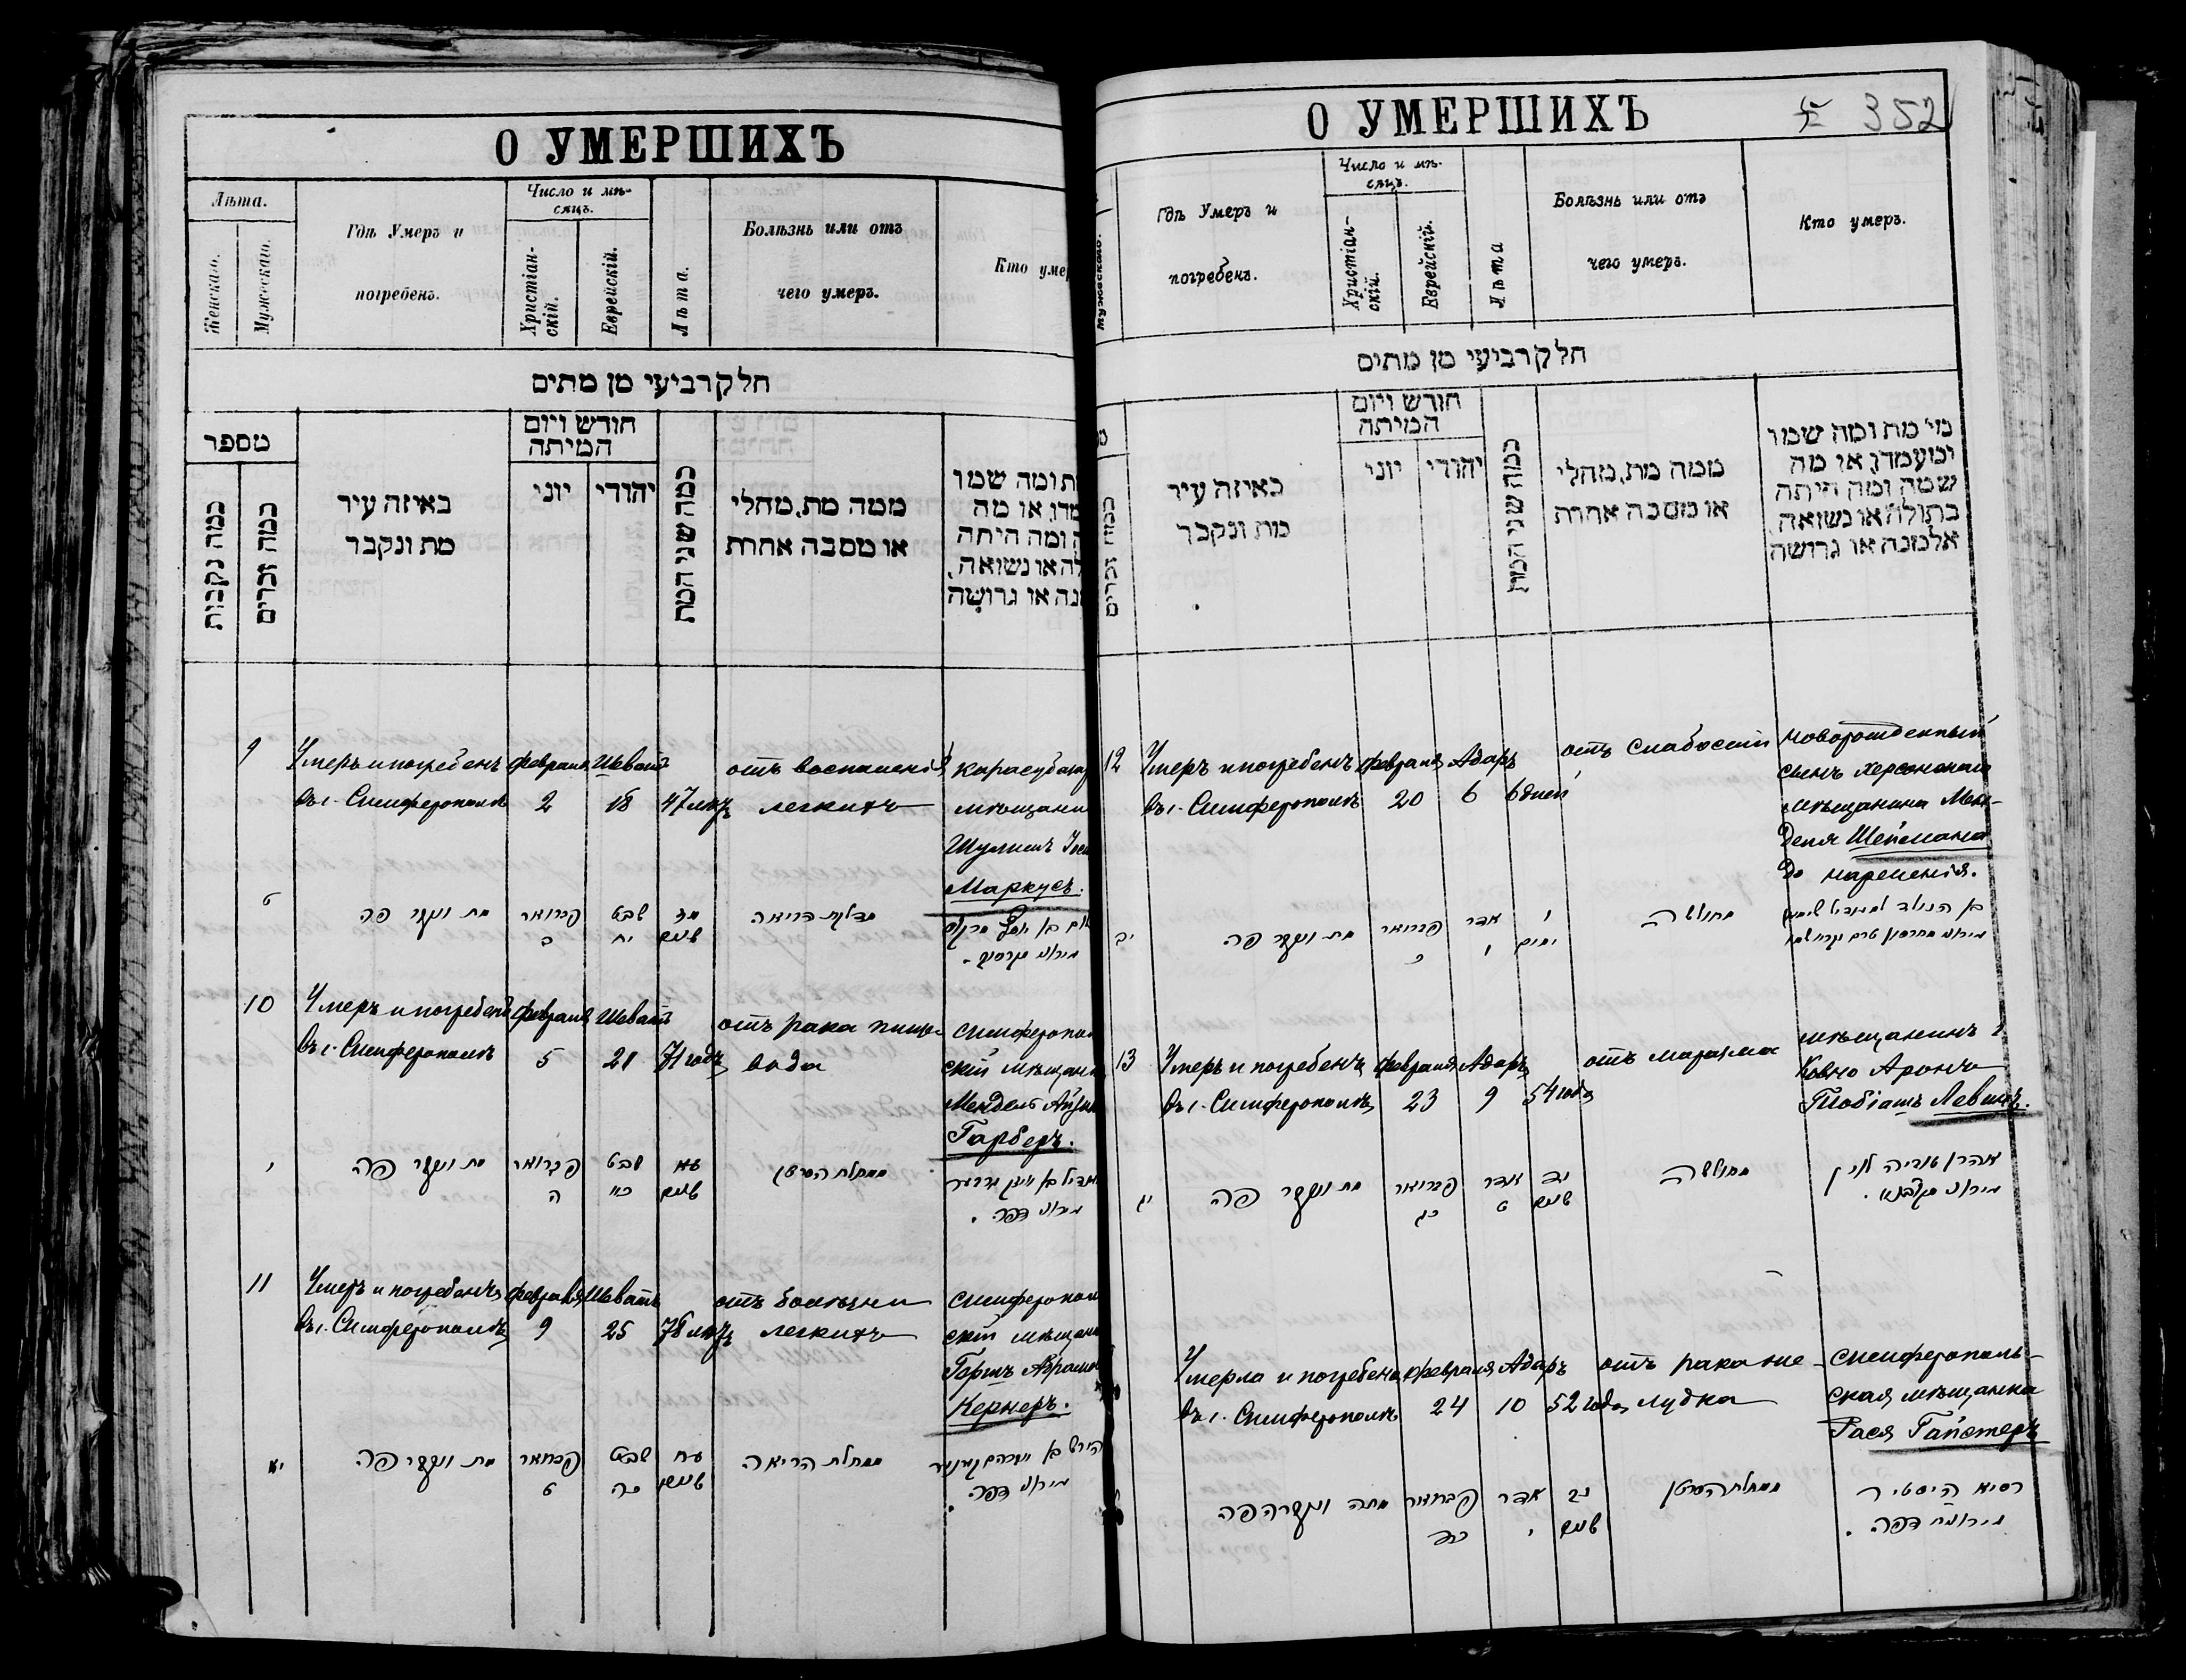 О УМЕРШИХЪ
Лѣта.
Женскаго.
Мужескаго.
Гдѣ Умеръ и
погребенъ.
Число и мѣ-
сяцъ.
Христіан-
скій.
Еврейскій.
Лѣта.
Болѣзнь или отъ
чего умеръ.
Кто умер
חלק רביעי מן מתים
מספר
כמה נקבות
כמה זכרים
באיזה עיר
מת ונקבר
חודש ויום
המיתה
יוני
יהודי
כמה שני המת
ממה מת, מחלי
או מסבה אחרת
ת ומה שמו
מדו, או מה
ה ומה היתה
לה או נשואה,
נה או גרושה
9
Умеръ и погребенъ
въ г. Симферополѣ
февраля
2
Шеватъ
18
47 лѣтъ
отъ воспаленія
легкихъ
карасубазар
мѣщанин
Шулимъ Іос
Маркусъ.
ט
מת ונקבר פה
פברואר
ב
שבט
יח
מז
שנים
מדלקת הריאה
10
Умеръ и погребенъ
въ г. Симферополѣ
февраля
5
Шеватъ
21
71 годъ
отъ рака пище-
вода
симферопол
скій мѣщани
Мендель Айзик
Гарберъ.
י
מת ונקבר פה
פברואר
ה
שבט
כא
עא
שנים
ממחלת הסרטן
מירונו דפה.
11
Умеръ и погребенъ
въ г. Симферополѣ
февраля
9
Шеватъ
25
78 лѣтъ
отъ болѣзни
легкихъ
симферопол
скій мѣщани
Гершъ Абрамо
Кернеръ.
יא
מת ונקבר פה
פברואר
ט
שבט
כה
עח
שנים
ממחלת הריאה
הירש בן אברהם קערנער
מירונו דפה.
О УМЕРШИХЪ
352
Мужескаго.
Гдѣ Умеръ и
погребенъ.
Число и мѣ-
сяцъ.
Христіан-
скій.
Еврейскій.
Лѣта
Болѣзнь или отъ
чего умеръ.
Кто умеръ.
חלק רביעי מן מתים
כמה זכרים
באיזה עיר
מת ונקבר
חודש ויום
המיתה
יוני
יהודי
כמה שני המת
ממה מת, מחלי
או מסבה אחרת
מי מת ומה שמו
ומעמדו, או מה
שמה ומה היתה
בתולה או נשואה,
אלמנה או גרושה
12
Умеръ и погребенъ
въ г. Симферополѣ
февраля
20
Адаръ
6
6 дней
отъ слабости
новорожденный
сынъ херсонскаго
мѣщанина Мен-
деля Шейнмана
до нареченія.
יב
מת ונקבר פה
פברואר
כ
אדר
ו
ו
ימים
מחולשה
13
Умеръ и погребенъ
въ г. Симферополѣ
февраля
23
Адаръ
9
54 года
отъ маразма
мѣщанинъ г.
Ковно Аронъ
Тобіашъ Левинъ.
יג
מת ונקבר פה
פברואר
כג
אדר
ט
נד
שנים
מחולשה
אהרן טוביה לוין
מירונו מקאבנא.
Умерла и погребена
въ г. Симферополѣ
февраля
24
Адаръ
10
52 года
отъ рака же-
лудка
симферополь-
ская мѣщанка
Рася Гайстеръ
מתה ונקברה פה
פברואר
כד
אדר
י
נב
שנים
ממחלת הסרטן
רסיא הייסטיר
מירונות דפה.